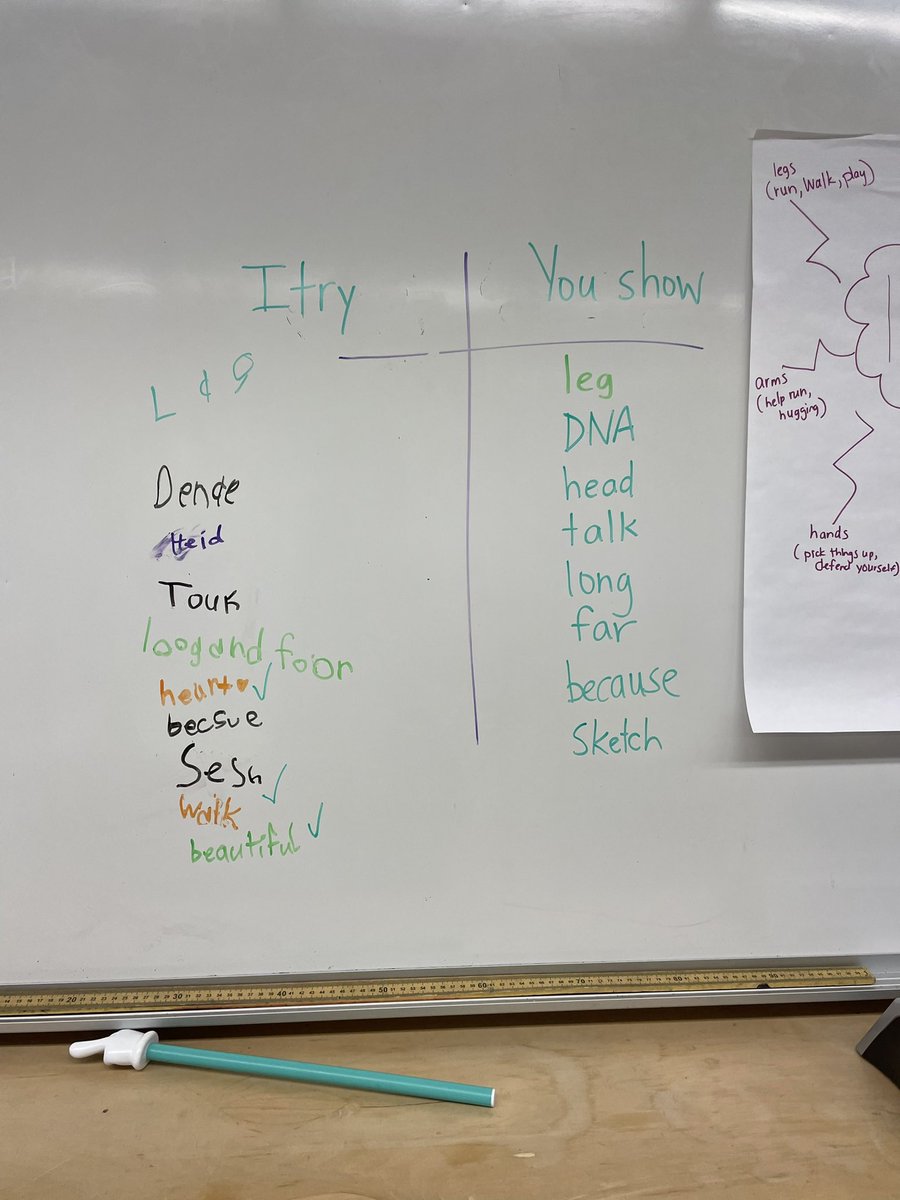 I try
You show
L & g
Dende
Heid
Touk
loog and foor
heart ♥ ✓
becsue
Sesh
walk ✓
beautiful ✓
leg
DNA
head
talk
long
far
because
sketch
legs
(run, walk, play)
arms
(help run,
hugging)
hands
(pick things up,
defend yourself)